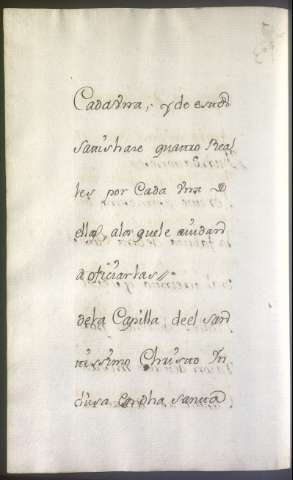 Cada Vna, y de esto
satisfhase quatro Real
les por Cada Vna D
ellas, alos que le aiudan
a oficiarlas //
dela Capilla, de el san
tissimo Christo In
clusa Capha santa